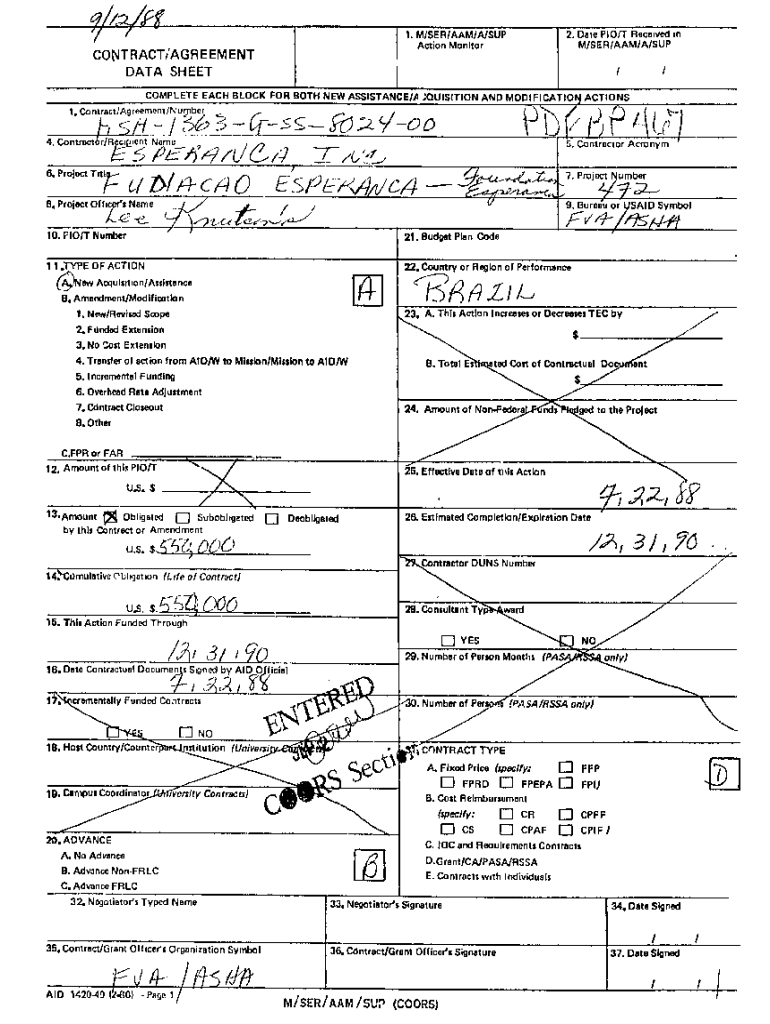 9/12/88
CONTRACT/AGREEMENT
DATA SHEET
1. M/SER/AAM/A/SUP
Action Monitor
2. Date PIO/T Received in
M/SER/AAM/A/SUP
/ /
COMPLETE EACH BLOCK FOR BOTH NEW ASSISTANCE/A QUISITION AND MODIFICATION ACTIONS
1. Contract/Agreement/Number
HSH-1363-G-SS-8024-00
4. Contractor/Recipient Name
ESPERANCA, Inc
5. Contractor Acronym
6. Project Title
FUDIACAO ESPERANCA — Foundation
Esperanca
7. Project Number
472
8. Project Officer's Name
Lee
9. Bureau or USAID Symbol
FVA/ASHA
10. PIO/T Number
21. Budget Plan Code
11. TYPE OF ACTION
A. New Acquisition/Assistance
B. Amendment/Modification
1. New/Revised Scope
2. Funded Extension
3. No Cost Extension
4. Transfer of action from AID/W to Mission/Mission to AID/W
5. Incremental Funding
6. Overhead Rate Adjustment
7. Contract Closeout
8. Other
C. FPR or FAR
A
22. Country or Region of Performance
BRAZIL
23. A. This Action Increases or Decreases TEC by
$
B. Total Estimated Cost of Contractual Document
$
24. Amount of Non-Federal Funds Pledged to the Project
12. Amount of this PIO/T
U.S. $
25. Effective Date of this Action
7, 22, 88
13. Amount Obligated Subobligated Deobligated
by this Contract or Amendment
U.S. $ 550,000
26. Estimated Completion/Expiration Date
12, 31, 90
14. Cumulative Obligation (Life of Contract)
U.S. $ 550,000
27. Contractor DUNS Number
28. Consultant Type Award
YES NO
15. This Action Funded Through
12, 31, 90
29. Number of Person Months (PASA/RSSA only)
16. Date Contractual Documents Signed by AID Official
7, 22, 88
17. Incrementally Funded Contracts
YES NO
30. Number of Persons (PASA/RSSA only)
ENTERED
COORS Section
18. Host Country/Counterpart Institution (University
19. Campus Coordinator (University Contracts)
31. CONTRACT TYPE
A. Fixed Price (specify: FFP
FPRD FPEPA FPI)
B. Cost Reimbursement
(specify: CR CPFF
CS CPAF CPIF)
C. IQC and Requirements Contracts
D. Grant/CA/PASA/RSSA
E. Contracts with Individuals
D
20. ADVANCE
A. No Advance
B. Advance Non-FRLC
C. Advance FRLC
B
32. Negotiator's Typed Name
33. Negotiator's Signature
34. Date Signed
/ /
35. Contract/Grant Officer's Organization Symbol
FVA/ASHA
36. Contract/Grant Officer's Signature
37. Date Signed
/ /
AID 1420-49 (2-80) - Page 1
M/SER/AAM/SUP (COORS)